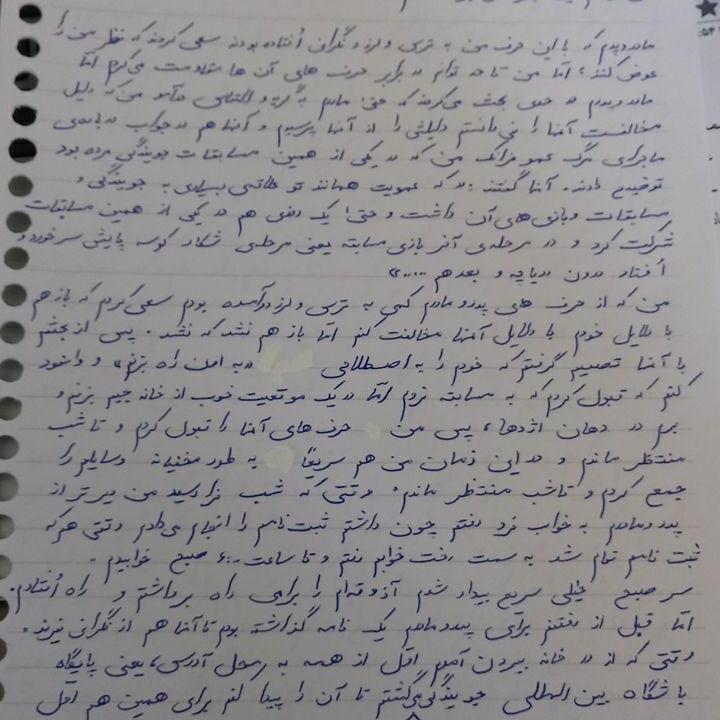 مادر و پدرم که با این حرف من به ترس و لرز و نگرانی اُفتاده بودند سعی کردند که نظر من را
عوض کنند؛ اما من تا حد توانم در برابر حرف های آن ها مقاومت می‌کردم اما
مادر و پدرم در حدی بحث می‌کردند که حتی مادرم به گریه و التماس در آمد من که دلیل
مخالفت آنها را نمی‌دانستم دلیلش را از آنها پرسیدم و آنها هم در جواب درباره‌ی
ماجرای مرگ عمو فرانک من که در یکی از همین مسابقات جویندگی مرده بود
توضیح دادند. آنها گفتند: «که عمویت همانند تو علاقه‌ی بسیاری به جویندگی و
مسابقات و بازی های آن داشت و حتی یک دفعه هم در یکی از همین مسابقات
شرکت کرد و در مرحله‌ی آخر بازی مسابقه یعنی مرحله‌ی شکار کوسه پایش سر خورد و
اُفتاد درون دریاچه و بعد هم .....»
من که از حرف های پدر و مادرم کمی به ترس و لرز درآمده بودم سعی کردم که باز هم
با دلایل خودم با دلایل آنها مخالفت کنم اما باز هم نشد که نشد. پس از بحثم
با آنها تصمیم گرفتم که خودم را به اصطلاحی «به امن راه بزنم» و وانمود
کنم که قبول کردم که به مسابقه نروم اما در یک موقعیت خوب از خانه جیم بزنم و
برم در دهان اژدها؛ پس من حرف های آنها را قبول کردم و تا شب
منتظر ماندم و در این زمان من هم سریعاً به طور مخفیانه وسایلم را
جمع کردم و تا شب منتظر ماندم. وقتی که شب فرا رسید من دیرتر از
پدر و مادرم به خواب فرو رفتم چون داشتم ثبت نامم را انجام می‌دادم وقتی هم که
ثبت نامم تمام شد به سمت رخت خوابم رفتم و تا ساعت ۶:۰۰ صبح خوابیدم.
سر صبح خیلی سریع بیدار شدم آذوقه‌ام را برای راه برداشتم و راه اُفتادم.
اما قبل از رفتنم برای پدر و مادرم یک نامه گذاشته بودم تا آنها هم از نگرانی نمیرند.
وقتی که از در خانه بیرون آمدم اول از همه به دنبال آدرس، یعنی پایگاه
باشگاه بین المللی جویندگی می‌گشتم تا آن را پیدا کنم برای همین هم اول